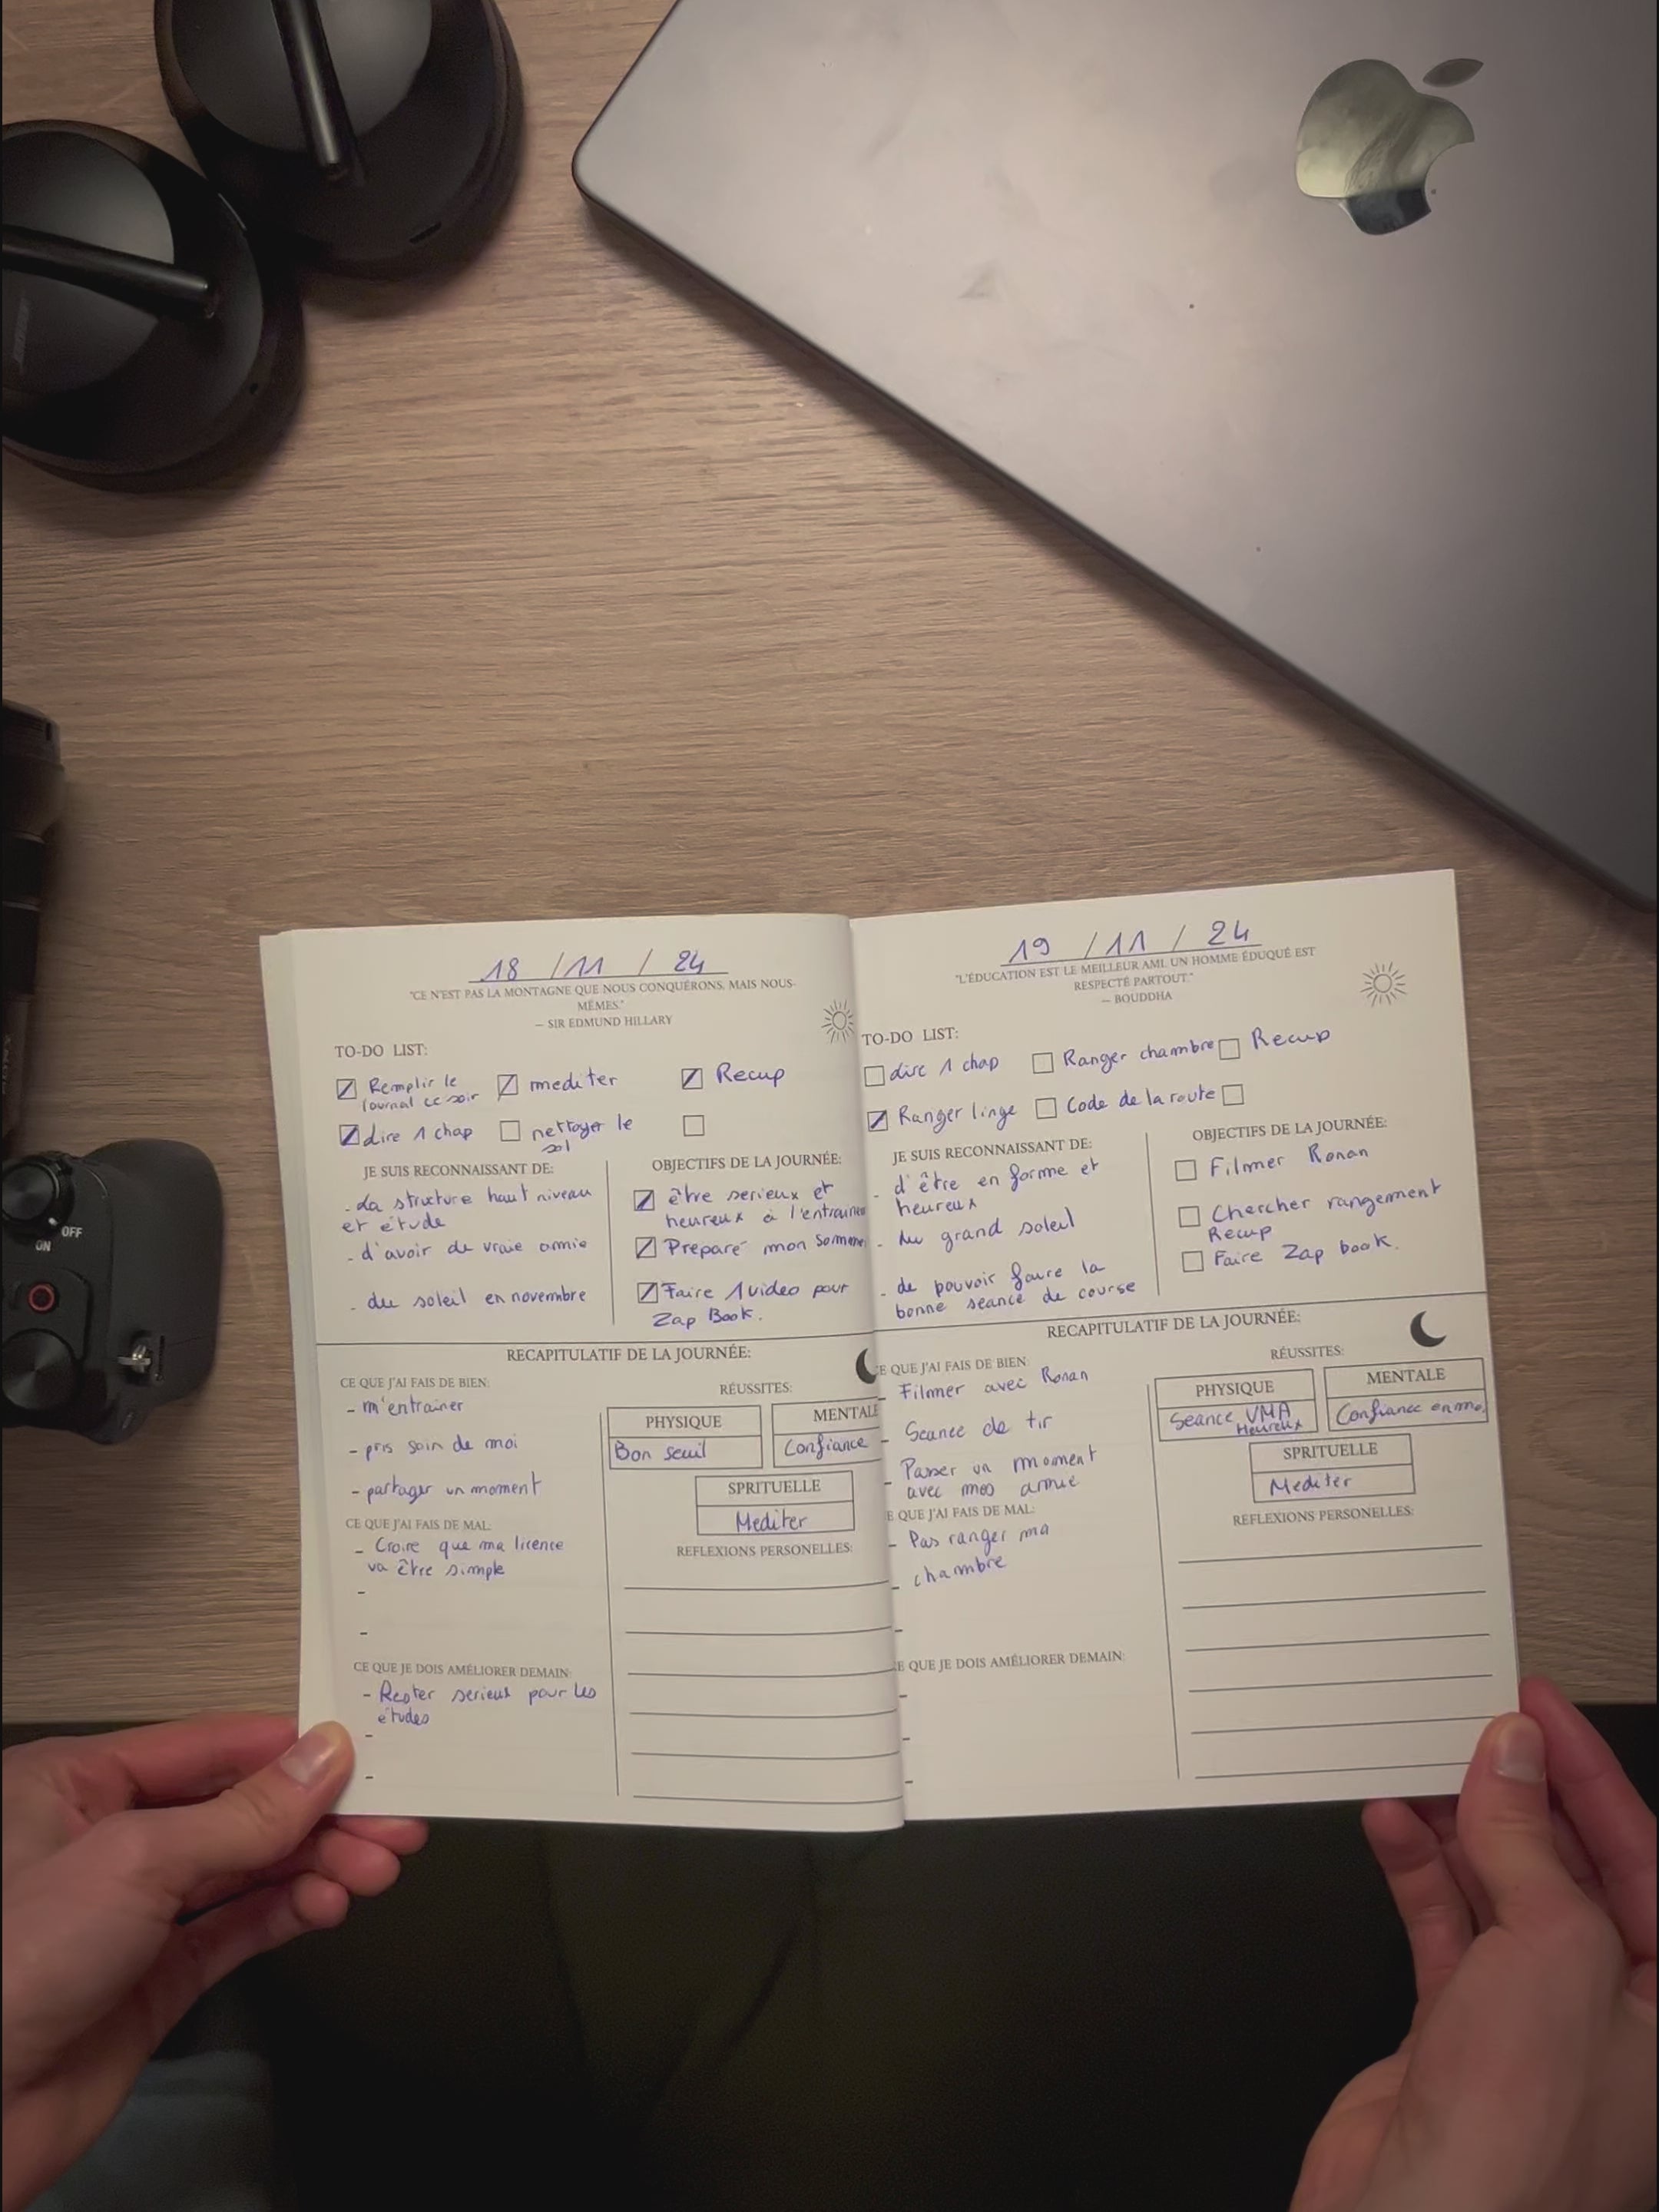 OFF
ON
18 / 11 / 24
"CE N'EST PAS LA MONTAGNE QUE NOUS CONQUÉRONS, MAIS NOUS-
MÊMES."
– SIR EDMUND HILLARY
TO-DO LIST:
Remplir le
journal ce soir
mediter
Recup
Lire 1 chap
nettoyer le
sol
JE SUIS RECONNAISSANT DE:
. La structure haut niveau
et étude
. d'avoir de vraie amie
. du soleil en novembre
OBJECTIFS DE LA JOURNÉE:
être serieux et
heureux à l'entraine
Preparé mon somme
Faire 1 video pour
Zap Book.
RECAPITULATIF DE LA JOURNÉE:
CE QUE J'AI FAIS DE BIEN:
- m'entrainer
- pris soin de moi
- partager un moment
CE QUE J'AI FAIS DE MAL:
- Croire que ma licence
va être simple
-
-
CE QUE JE DOIS AMÉLIORER DEMAIN:
- Rester serieux pour les
études
-
-
RÉUSSITES:
PHYSIQUE
Bon seuil
MENTALE
Confiance
SPRITUELLE
Mediter
REFLEXIONS PERSONELLES:
19 / 11 / 24
"L'ÉDUCATION EST LE MEILLEUR AMI. UN HOMME ÉDUQUÉ EST
RESPECTÉ PARTOUT."
– BOUDDHA
TO-DO LIST:
Lire 1 chap
Ranger chambre
Recup
Ranger linge
Code de la route
JE SUIS RECONNAISSANT DE:
- d'être en forme et
heureux
- du grand soleil
- de pouvoir faire la
bonne seance de course
OBJECTIFS DE LA JOURNÉE:
Filmer Ronan
Chercher rangement
Recup
Faire Zap book.
RECAPITULATIF DE LA JOURNÉE:
CE QUE J'AI FAIS DE BIEN:
- Filmer avec Ronan
- Seance de tir
- Passer un moment
avec mes amie
E QUE J'AI FAIS DE MAL:
- Pas ranger ma
- chambre
-
E QUE JE DOIS AMÉLIORER DEMAIN:
-
-
-
RÉUSSITES:
PHYSIQUE
Seance VMA
Heureux
MENTALE
Confiance en mo
SPRITUELLE
Mediter
REFLEXIONS PERSONELLES: